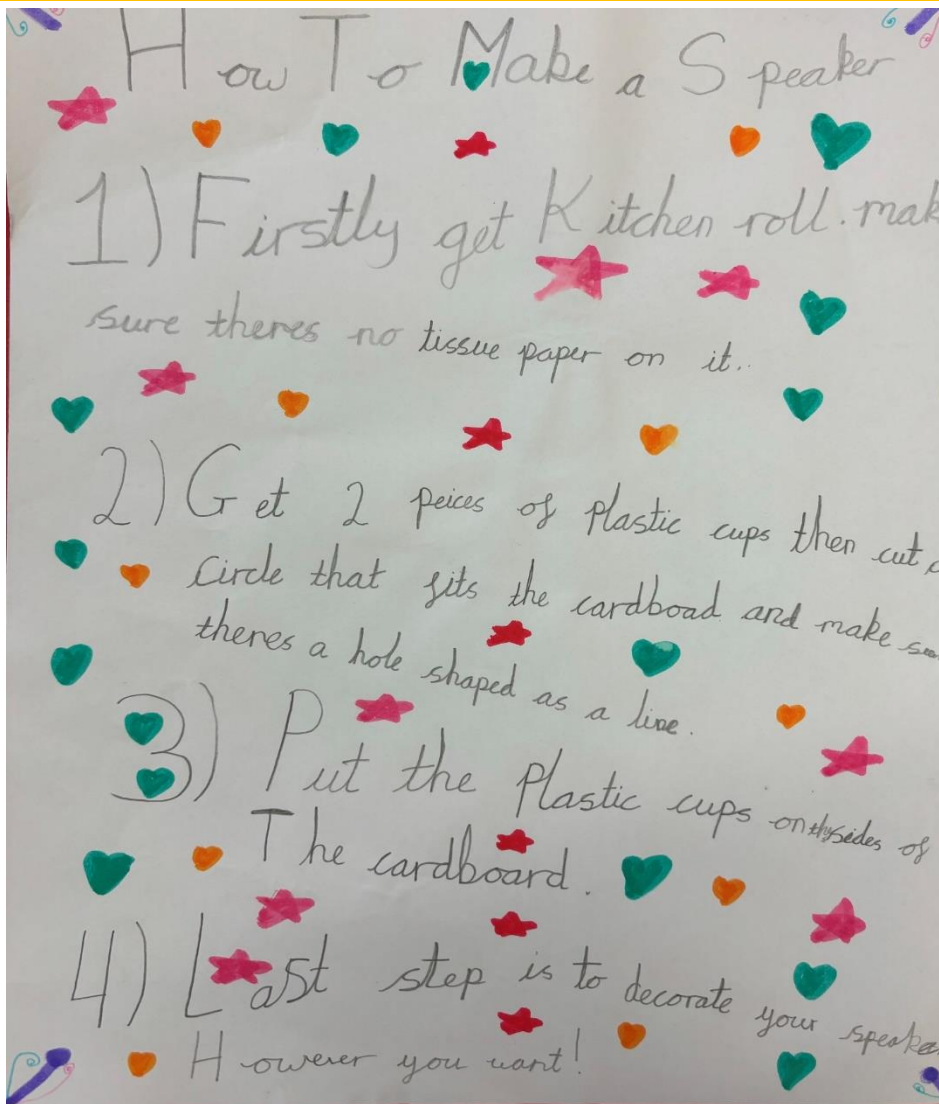 How To Make a Speaker
1) Firstly get Kitchen roll. mak
sure theres no tissue paper on it..
2) Get 2 peices of plastic cups then cut
Circle that fits the cardboad and make
theres a hole shaped as a line.
3) Put the plastic cups on the sides of
The cardboard.
4) Last step is to decorate your speake
However you want!